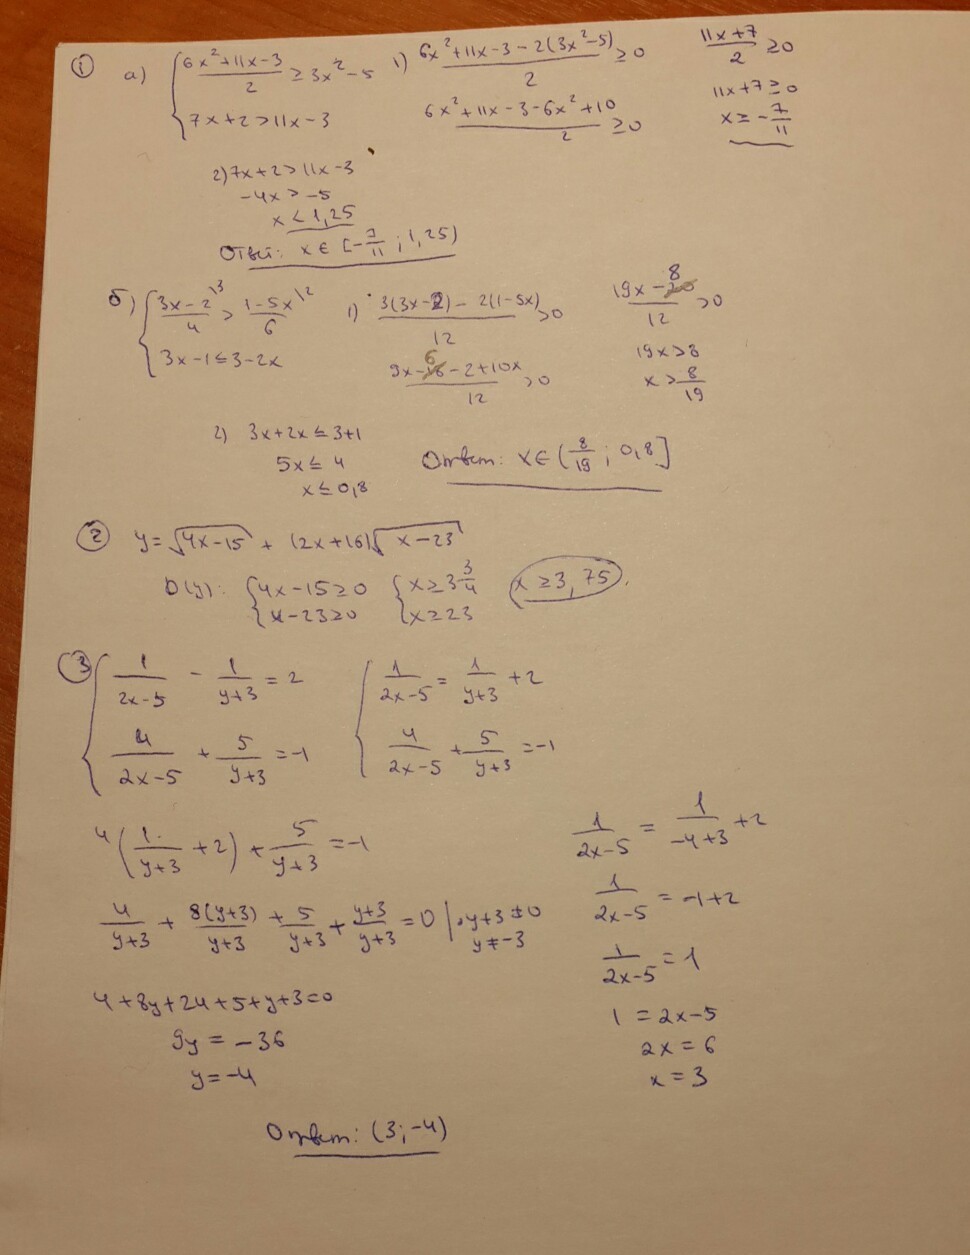 ① а) { (6x²+11x-3)/2 ≥ 3x²-5
7x+2>11x-3
1) (6x²+11x-3-2(3x²-5))/2 ≥0
(6x²+11x-3-6x²+10)/2 ≥0
(11x+7)/2 ≥0
11x+7≥0
x≥-7/11
2) 7x+2>11x-3
-4x>-5
x<1,25
Ответ: x∈[-7/11; 1,25)
б) { (3x-2)/4 \3 > (1-5x)/6 \2
3x-1≤3-2x
1) (3(3x-2)-2(1-5x))/12 >0
(9x-6-2+10x)/12 >0
(19x-8)/12 >0
19x>8
x>8/19
2) 3x+2x≤3+1
5x≤4
x≤0,8
Ответ: x∈(8/19; 0,8]
② y=√(4x-15) + (2x+16)√(x-23)
D(y): { 4x-15≥0 { x≥3 3/4 x≥3,75.
x-23≥0 x≥23
③ { 1/(2x-5) - 1/(y+3) = 2
4/(2x-5) + 5/(y+3) = -1
{ 1/(2x-5) = 1/(y+3) + 2
4/(2x-5) + 5/(y+3) = -1
4(1/(y+3) + 2) + 5/(y+3) = -1
4/(y+3) + 8(y+3)/(y+3) + 5/(y+3) + (y+3)/(y+3) = 0 | · y+3≠0
y≠-3
4+8y+24+5+y+3=0
9y = -36
y=-4
1/(2x-5) = 1/(-4+3) + 2
1/(2x-5) = -1+2
1/(2x-5) = 1
1 = 2x-5
2x = 6
x = 3
Ответ: (3; -4)